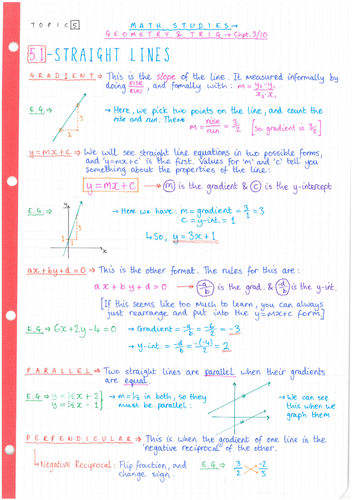 TOPIC 5
MATH STUDIES →
GEOMETRY & TRIG → Chpt. 9/10
5.1 - STRAIGHT LINES
GRADIENT → This is the slope of the line. It measured informally by
doing rise/run, and formally with: m = y₂-y₁/x₂-x₁
E.G. → Here, we pick two points on the line, and count the
rise and run. Then:
m = rise/run = 3/2 [So gradient is 3/2]
3
2
y=mx+c → We will see straight line equations in two possible forms,
and 'y=mx+c' is the first. Values for 'm' and 'c' tell you
something about the properties of the line:
y = mx + c → m is the gradient & c is the y-intercept
E.G. → Here we have: m = gradient = 3/1 = 3
c = y-int. = 1
↳ So, y = 3x + 1
y
3
1
x
ax + by + d = 0 → This is the other format. The rules for this are:
ax + by + d = 0 → -a/b is the grad. & -d/b is the y-int.
[If this seems like too much to learn, you can always
just rearrange and put into the y=mx+c form]
E.G. → 6x + 2y - 4 = 0 → Gradient = -a/b = -6/2 = -3
→ y-int. = -d/b = -(-4)/2 = 2
PARALLEL → Two straight lines are parallel when their gradients
are equal.
E.G. → y = ½x + 2
y = ½x - 1
→ m = ½ in both, so they
must be parallel:
→ We can see
this when we
graph them
PERPENDICULAR → This is when the gradient of one line is the
'negative reciprocal' of the other.
↳ Negative Reciprocal: Flip fraction, and
change sign.
E.G. → 3/2 -2/3